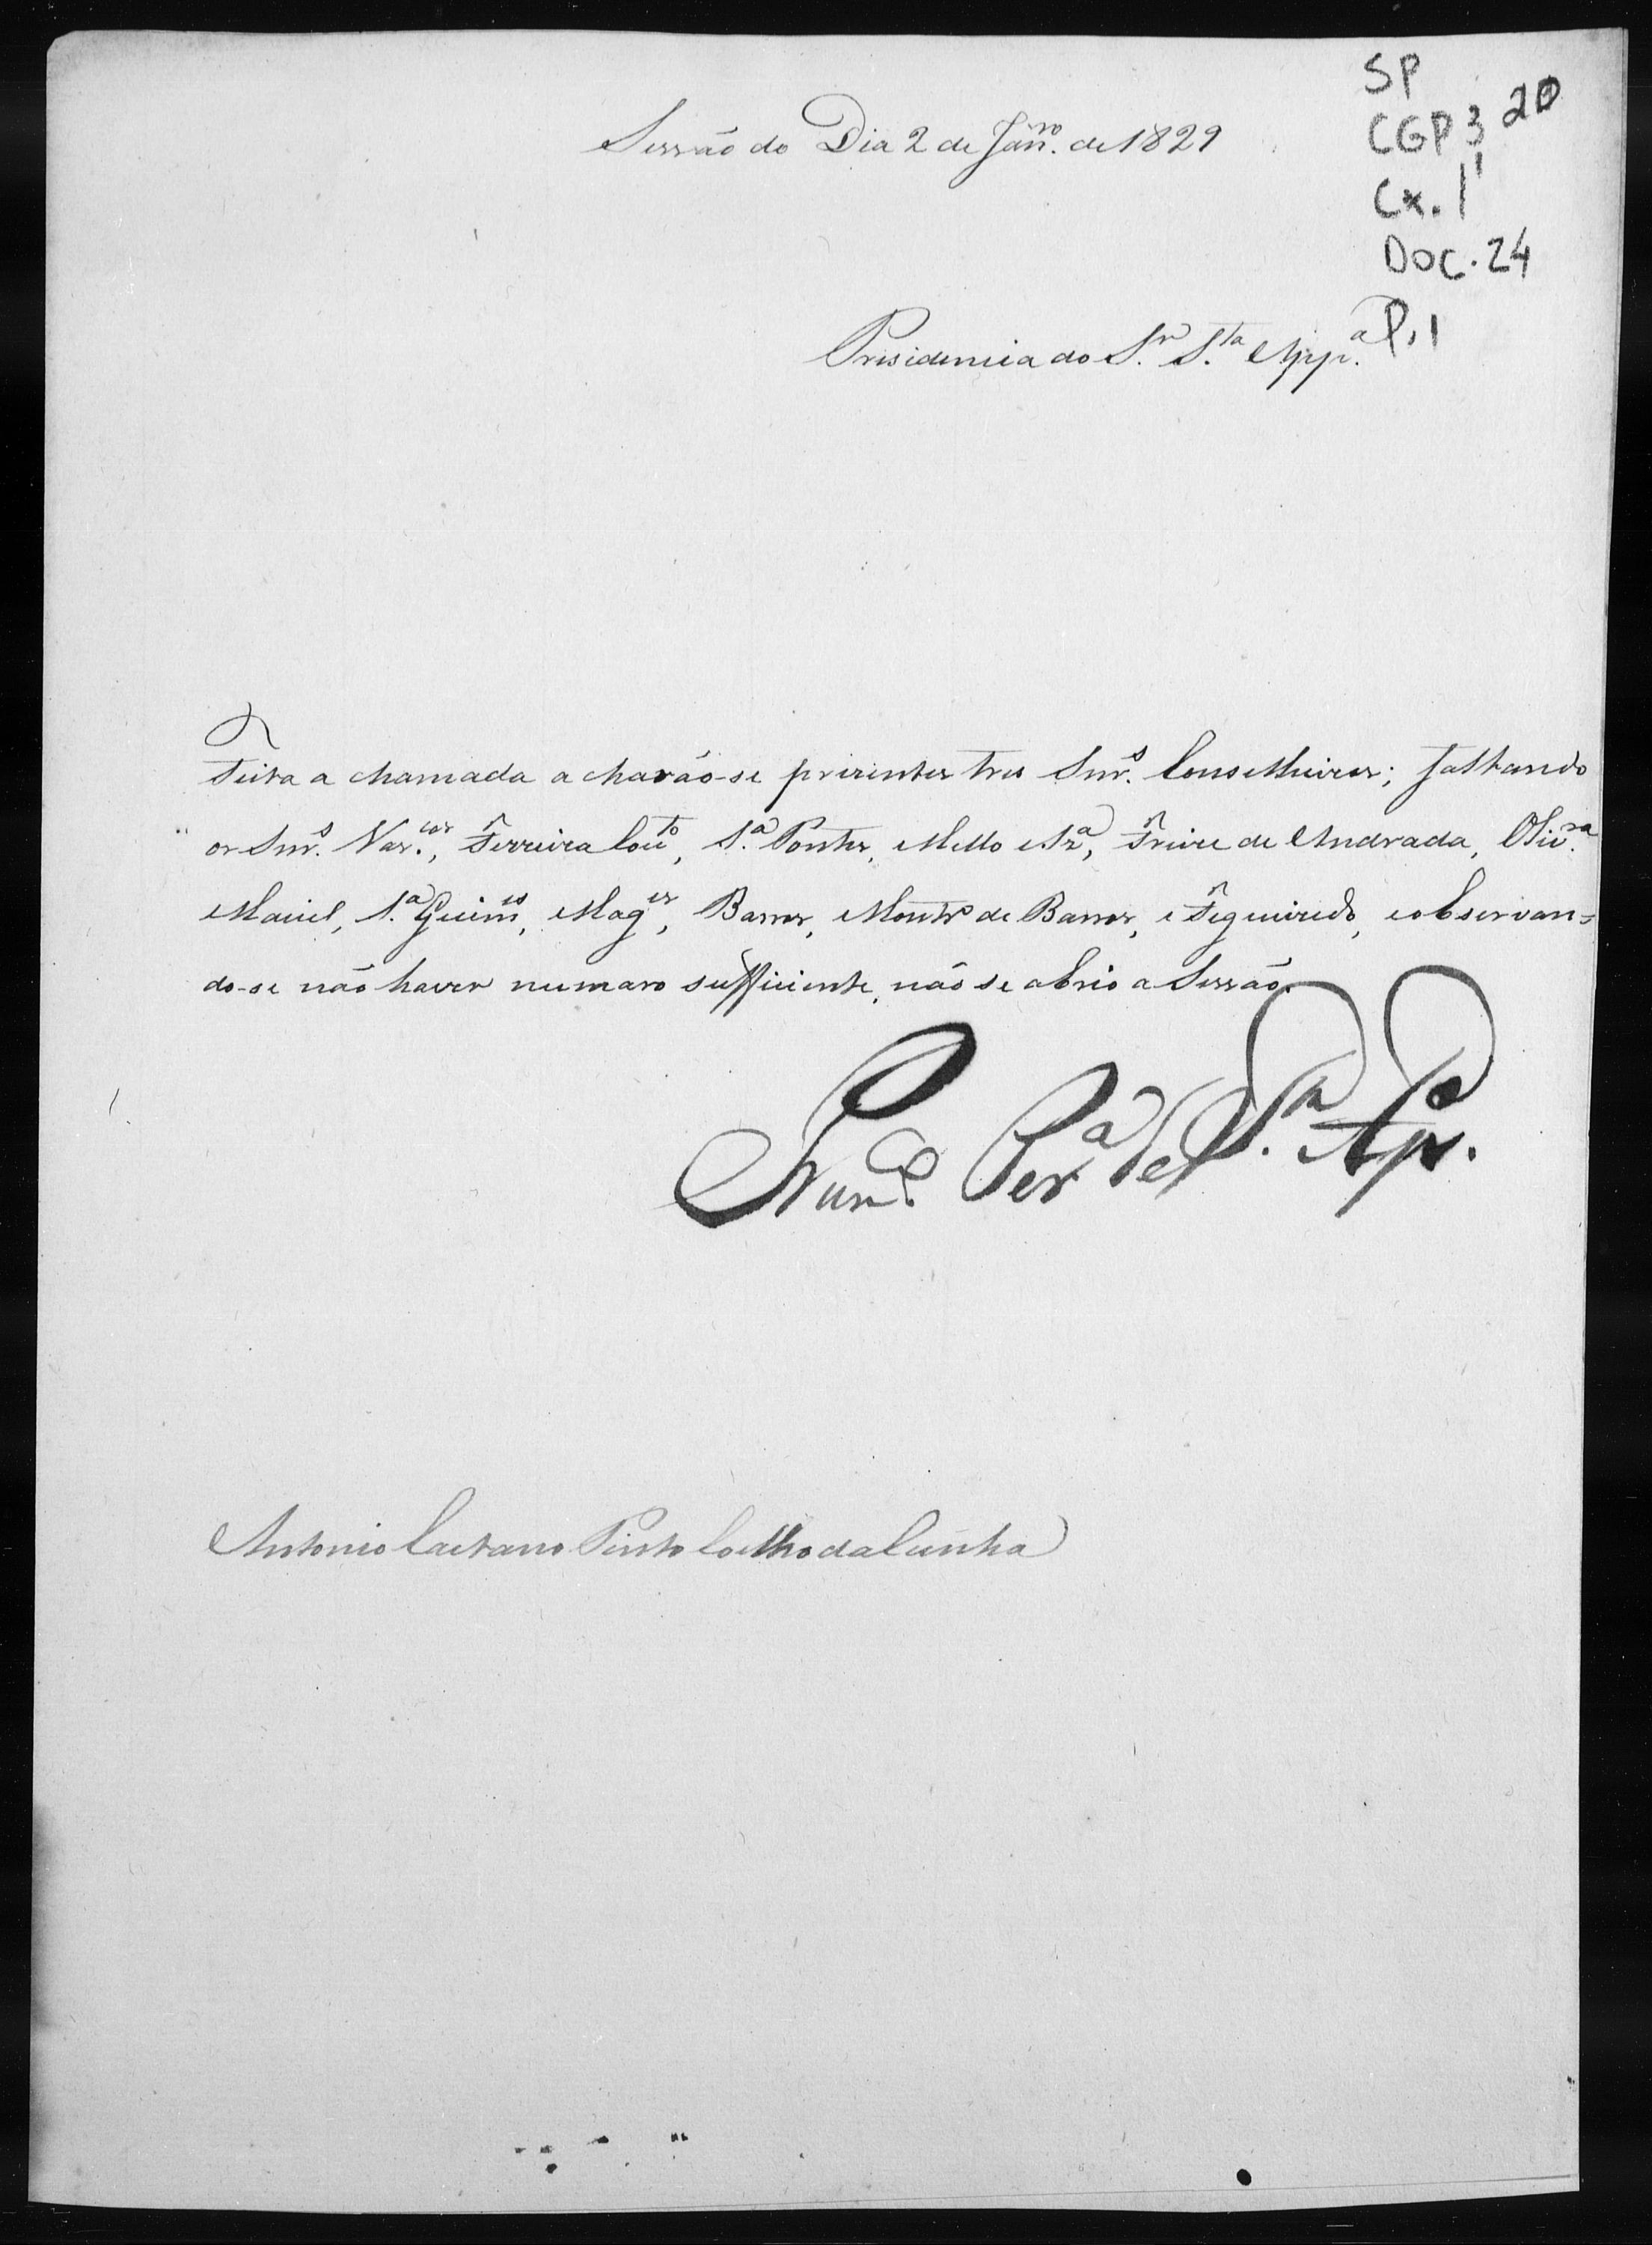 SP
CGP 3 20
Cx. 11
Doc. 24
P. 1
Sessão do Dia 2 de Jan.ro de 1829
Presidencia do S.r S.ta App.a
Feita a chamada acharão-se prezentes tres Snr.s Conselheiros; faltando
os Snr.s Vas.cos, Ferreira Couto, S.a Pontes, Mello e Sz.a, Freire de Andrada, Oliv.ra
Maciel, S.a Guim.es, Mag.es, Barros, Montr.o de Barros, e Figueiredo, e observan=
do-se não haver numaro sufficiente, não se abrio a Sessão.
Per.a de S.ta Ap.a
Antonio Caetano Pinto Coelho da Cunha